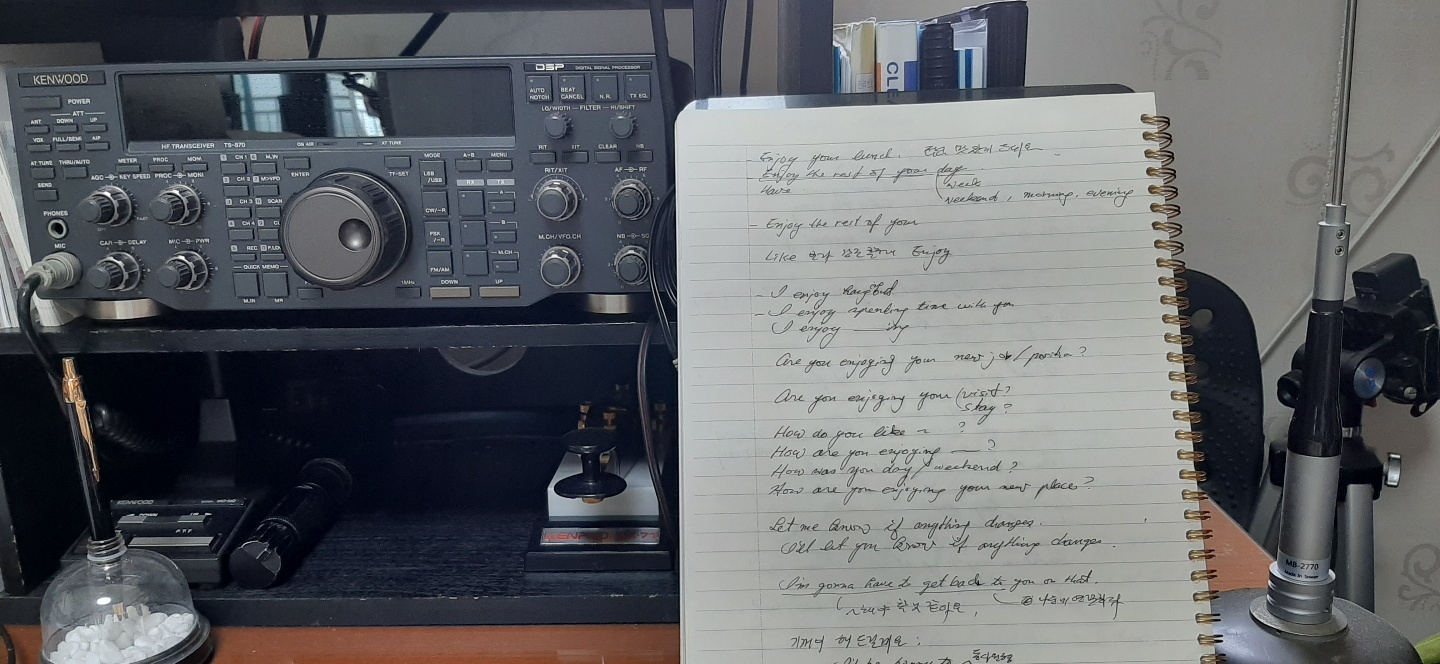 KENWOOD
DSP DIGITAL SIGNAL PROCESSOR
POWER
AUTO NOTCH
BEAT CANCEL
N.R.
TX EQ.
ATT
ANT. DOWN UP
VOX FULL/SEMI AIP
LO/WIDTH FILTER HI/SHIFT
HF TRANSCEIVER TS-870
ON AIR
AT TUNE
AT TUNE THRU/AUTO
METER PROC MONI
CH 1
M.IN
ENTER
TF-SET
MODE
A=B
MENU
RIT
XIT
CLEAR
SEND
AGC KEY SPEED PROC MONI
CH 2
M>VFO
LSB /USB
RX
TX
RIT/XIT
AF RF
CH 3
SCAN
CW/-R
A
PHONES
CH 4
FSK /-R
B
MIC
CAR DELAY
MIC PWR
REC
M.CH/VFO.CH
NB SQ
M.CH
QUICK MEMO
FM/AM
M.IN
MR
1MHz
DOWN
UP
KENWOOD
DOWN UP
P.T.T
CL
- Enjoy your lunch. 점심 맛있게 드세요
- Enjoy the rest of your day
Have
week
weekend, morning, evening
- Enjoy the rest of your
Like Enjoy
- I enjoy
- I enjoy spending time with you
I enjoy ing
Are you enjoying your new job/position?
Are you enjoying your visit?
stay?
How do you like ~ ?
How are you enjoying ?
How was you day/weekend?
How are you enjoying your new place?
Let me know if anything changes.
I'll let you know if anything changes.
I'm gonna have to get back to you on that.
~해야 할 것 같아요,
기꺼이 해 드릴게요:
I'll be happy to
MB-2770
Made in Taiwan